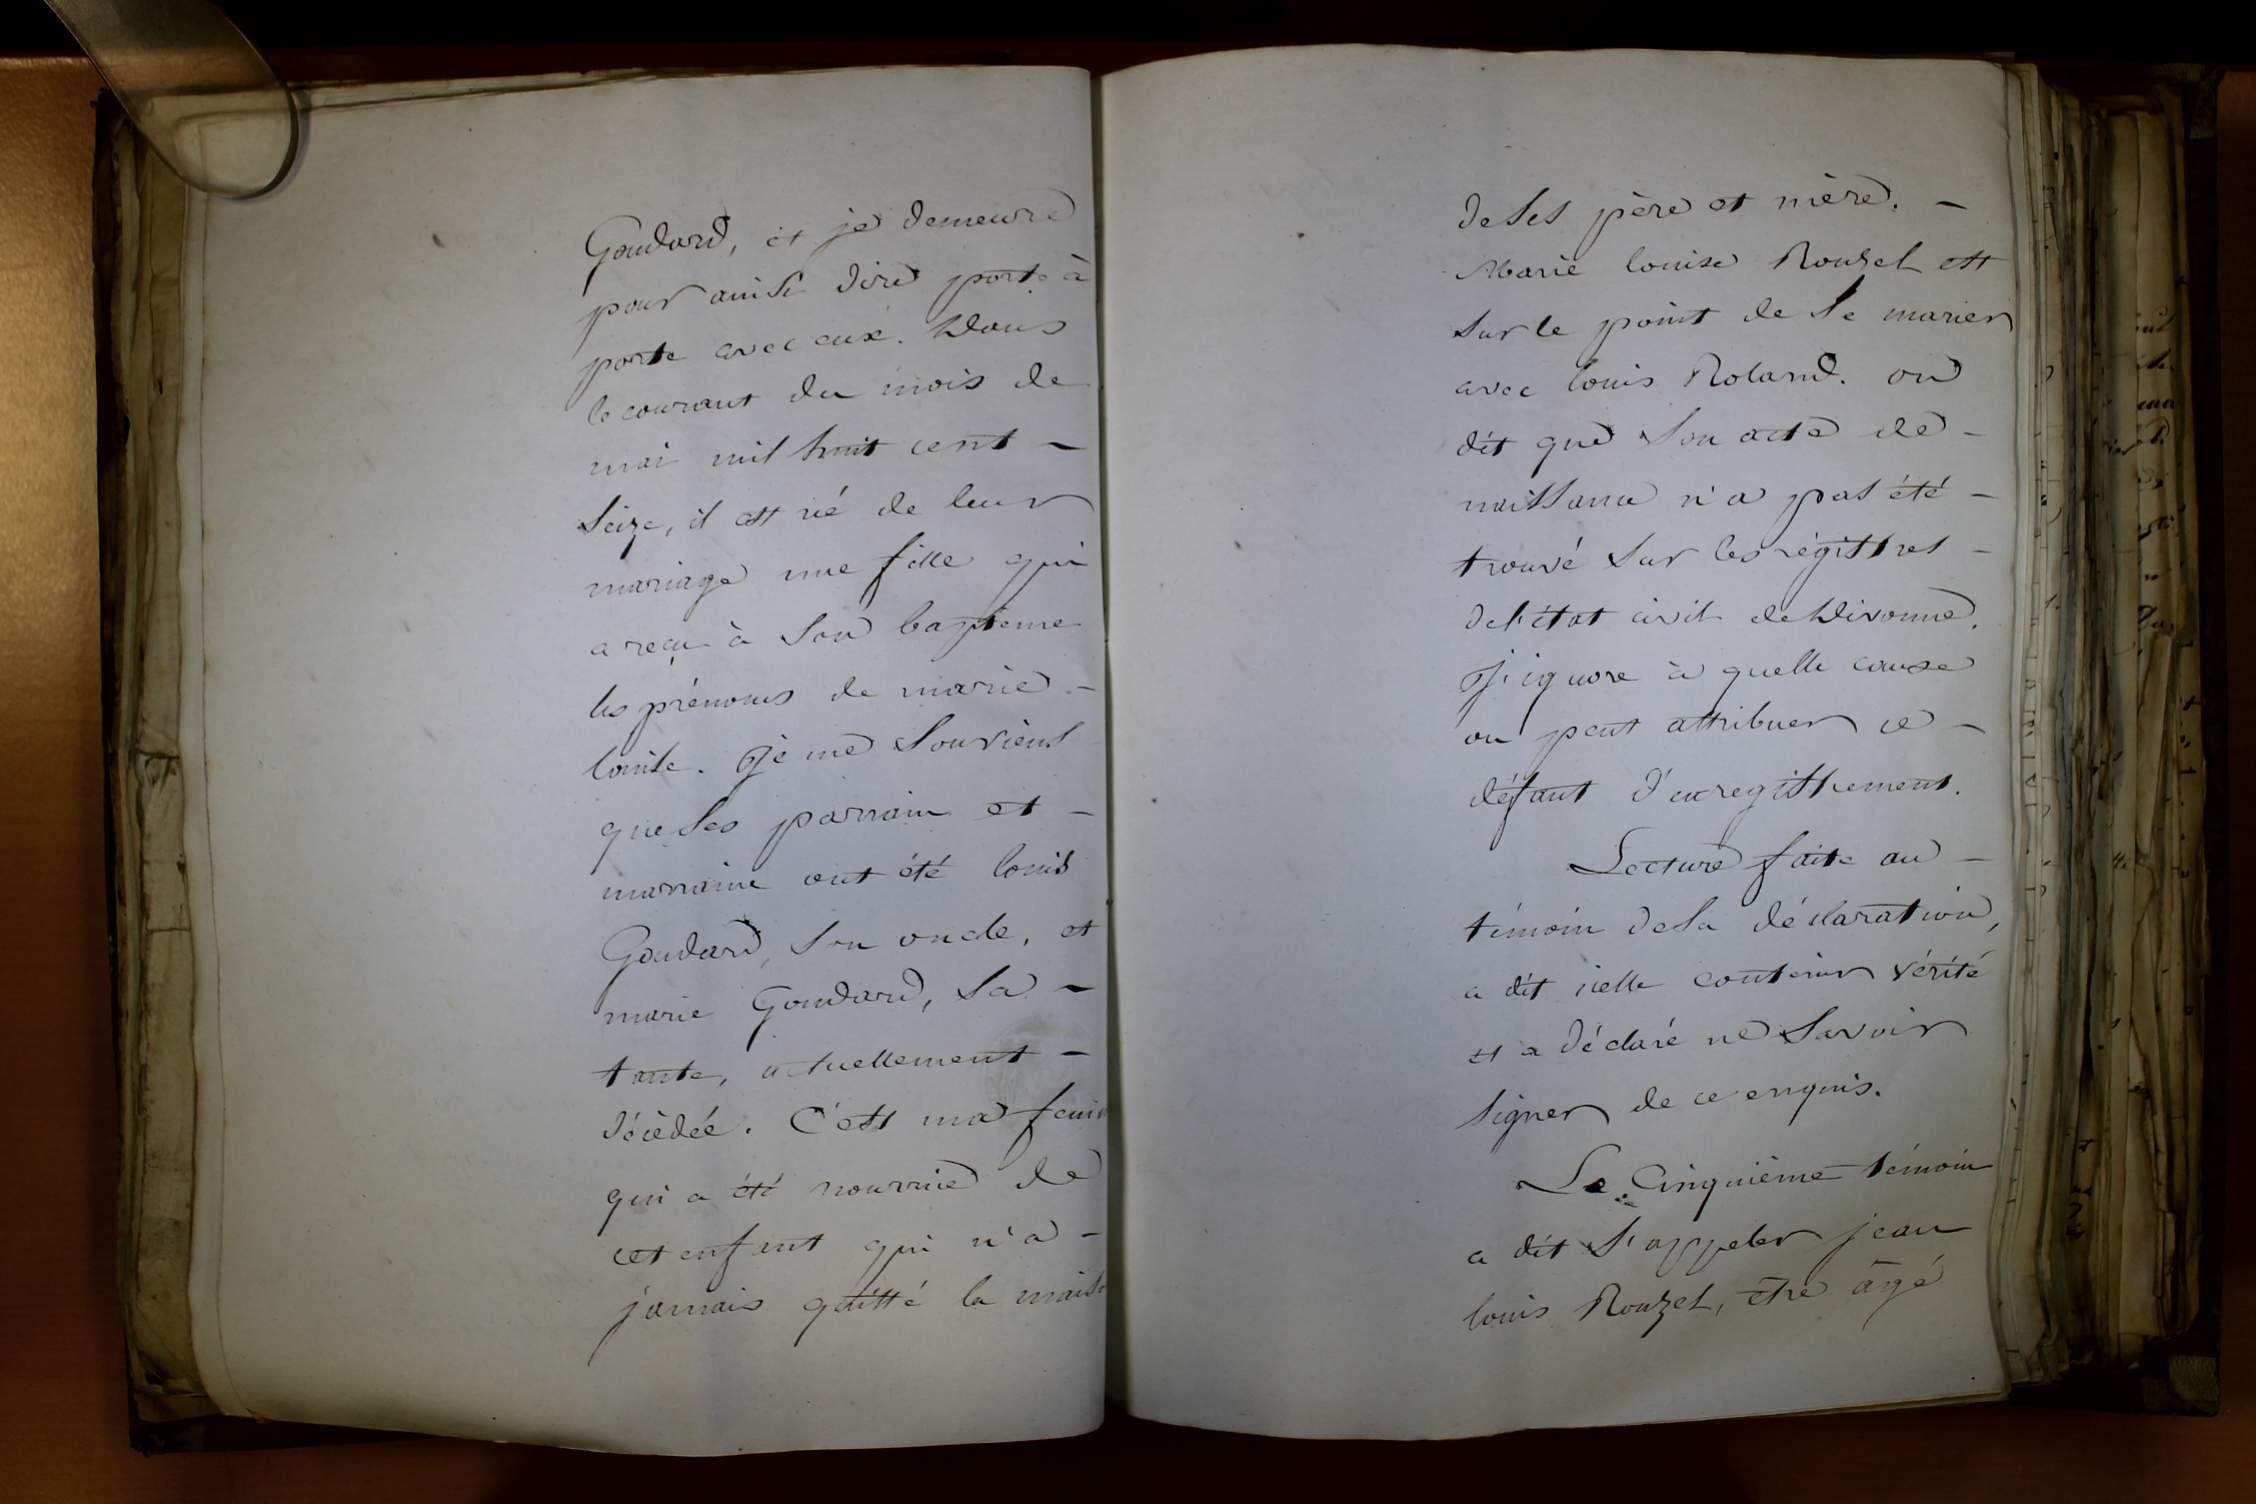 Goudard, et je demeure
pour ainsi dire porte à
porte avec eux. Dans
le courant du mois de
mai mil huit cent -
seize, il est né de leur
mariage une fille qui
a reçu à son baptême
les prénoms de marie -
louise. Je me souviens
que ses parrain et -
marraine ont été louis
Goudard, son oncle, et
marie Goudard, sa -
tante, actuellement -
décédée. C'est ma
qui a été nourrice de
cet enfant qui n'a -
jamais quitté la
de ses père et mère. -
Marie louise Rouzet est
sur le point de se marier
avec louis Roland. on
dit que son acte de -
naissance n'a pas été -
trouvé sur les régistres -
de l'état civil de Divonne.
J'ignore à quelle cause
on peut attribuer ce -
défaut d'enregistrement.
Lecture faite au -
témoin de sa déclaration,
a dit icelle contenir vérité
et a déclaré ne savoir
signer de ce enquis.
Le Cinquième témoin
a dit s'appeler jean
louis Rouzet, être âgé